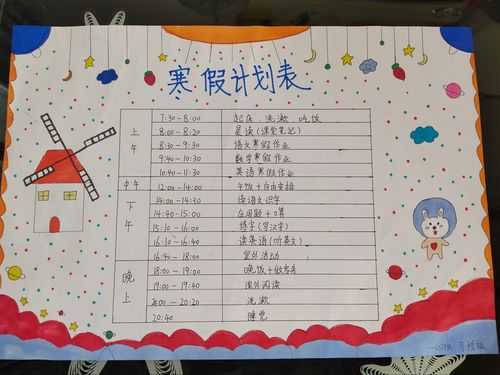 寒假计划表
上午
7:30-8:00 起床、洗漱、吃饭
8:00-8:20 晨读(课堂笔记)
8:30-9:30 语文寒假作业
9:40-10:30 数学寒假作业
10:40-11:30 英语寒假作业
中午 12:00-14:00 午饭+自由安排
下午
14:00-14:30 读语文识字
14:40-15:00 应用题+口算
15:10-16:00 练字(写汉字)
16:10-16:40 读英语(听英文)
16:40-18:00 室外活动
晚上
18:00-19:00 晚饭+做家务
19:00-19:40 课外阅读
20:00-20:20 洗漱
20:40 睡觉